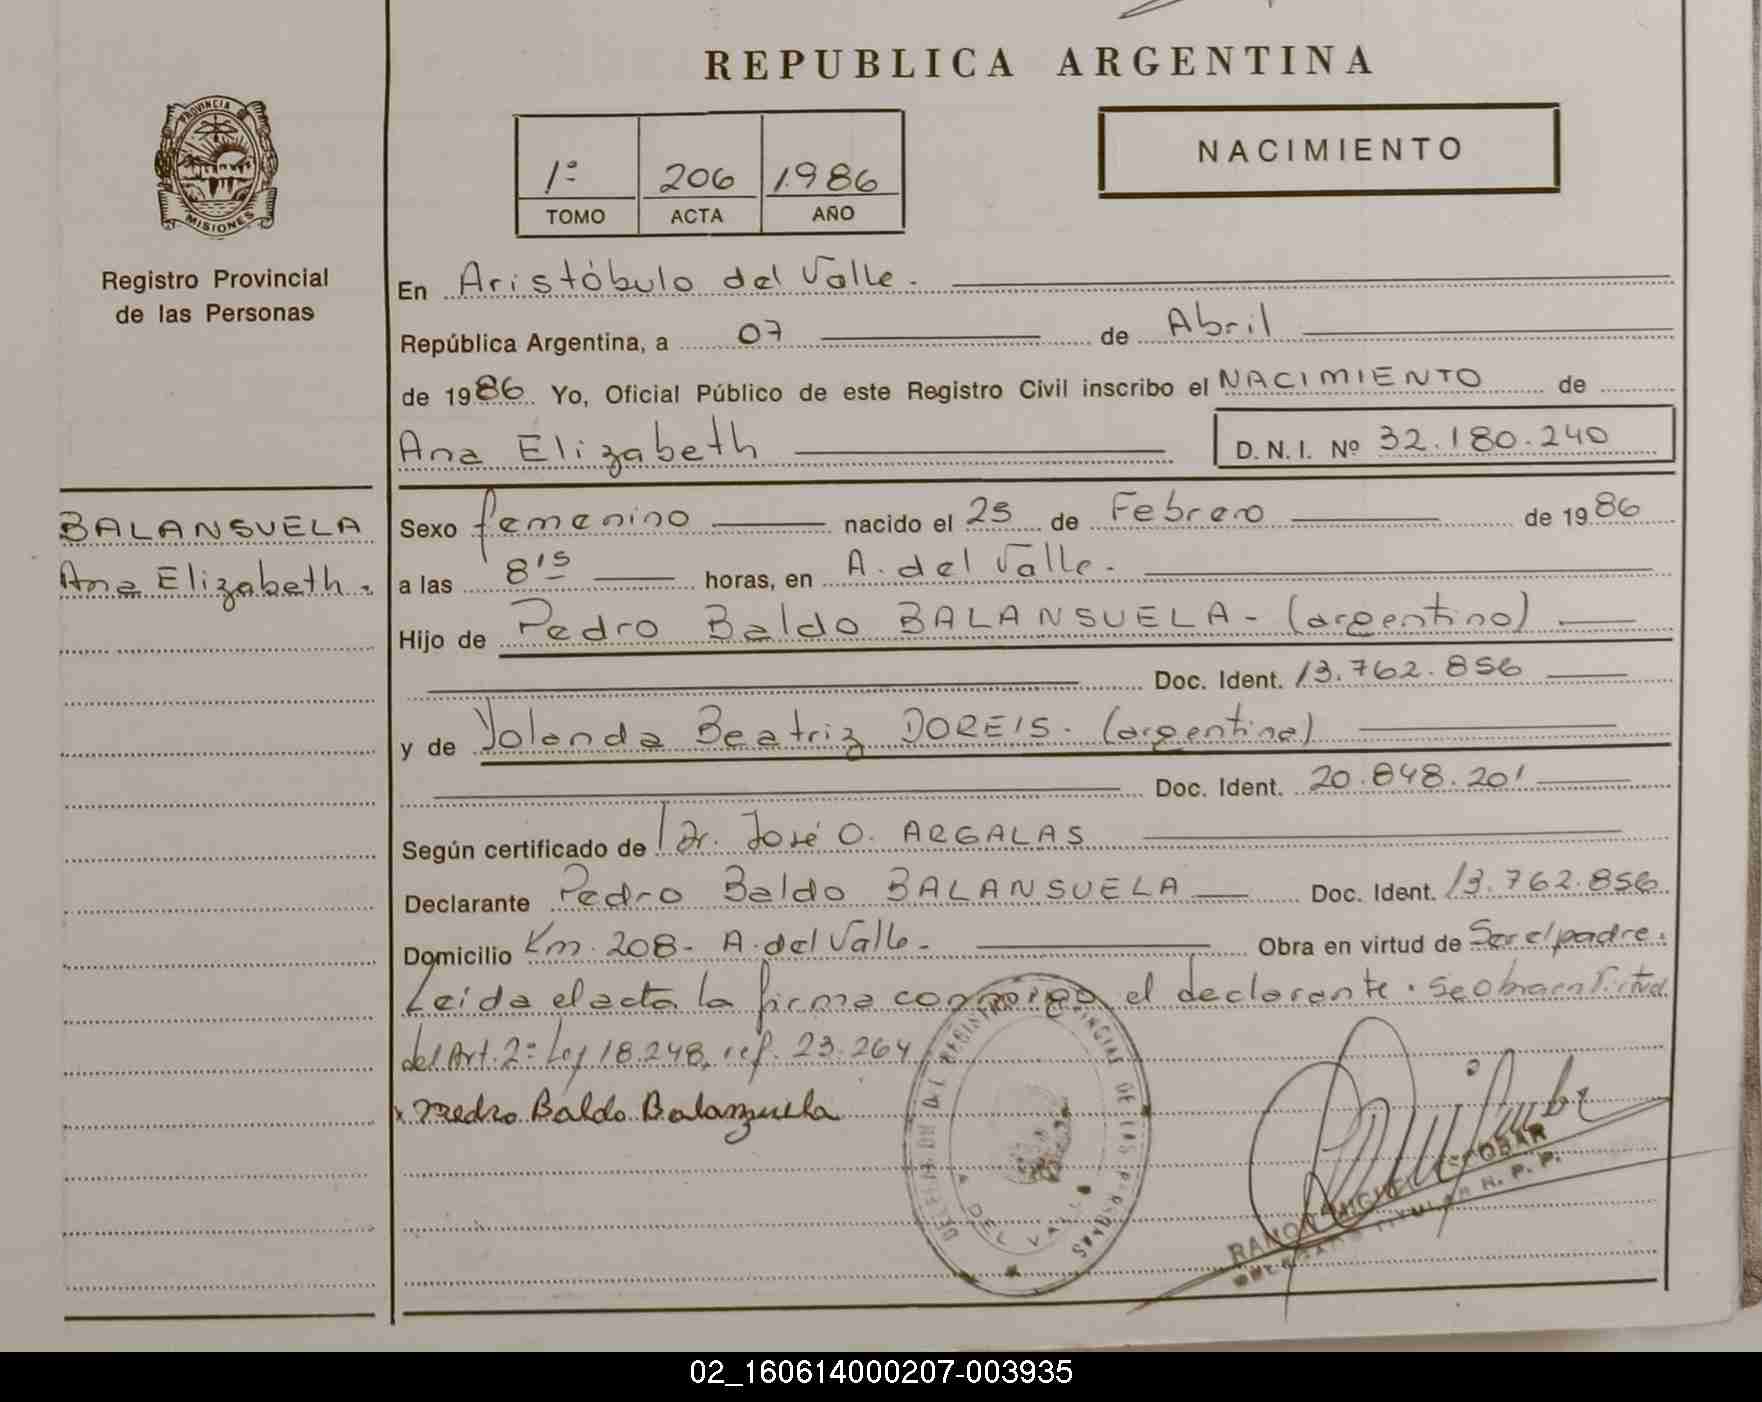 REPUBLICA ARGENTINA
PROVINCIA
MISIONES
Registro Provincial
de las Personas
NACIMIENTO
1º 206 1986
TOMO ACTA AÑO
En Aristóbulo del Valle.
República Argentina, a 07 de Abril
de 1986 Yo, Oficial Público de este Registro Civil inscribo el NACIMIENTO de
Ana Elizabeth D.N.I. Nº 32.180.240
BALANSUELA
Ana Elizabeth.
Sexo femenino nacido el 25 de Febrero de 1986
a las 8'15 horas, en A. del Valle.
Hijo de Pedro Baldo BALANSUELA - (argentino)
Doc. Ident. 13.762.856
y de Yolanda Beatriz DOREIS. (argentina)
Doc. Ident. 20.848.201
Según certificado de Dr. José O. ARGALAS
Declarante Pedro Baldo BALANSUELA Doc. Ident. 13.762.856
Domicilio Km. 208 - A. del Valle. Obra en virtud de Ser el padre.
Leída el acta la firma conmigo el declarante. Se obra en virtud
del Art. 2º Ley 18.248, ref. 23.264
x Pedro Baldo Balanzuela
DELEGACION DEL REGISTRO PROVINCIAL DE LAS PERSONAS
A. DEL VALLE
RAMON MIGUEL ESCOBAR
DELEGADO TITULAR R. P. P.
02_160614000207-003935